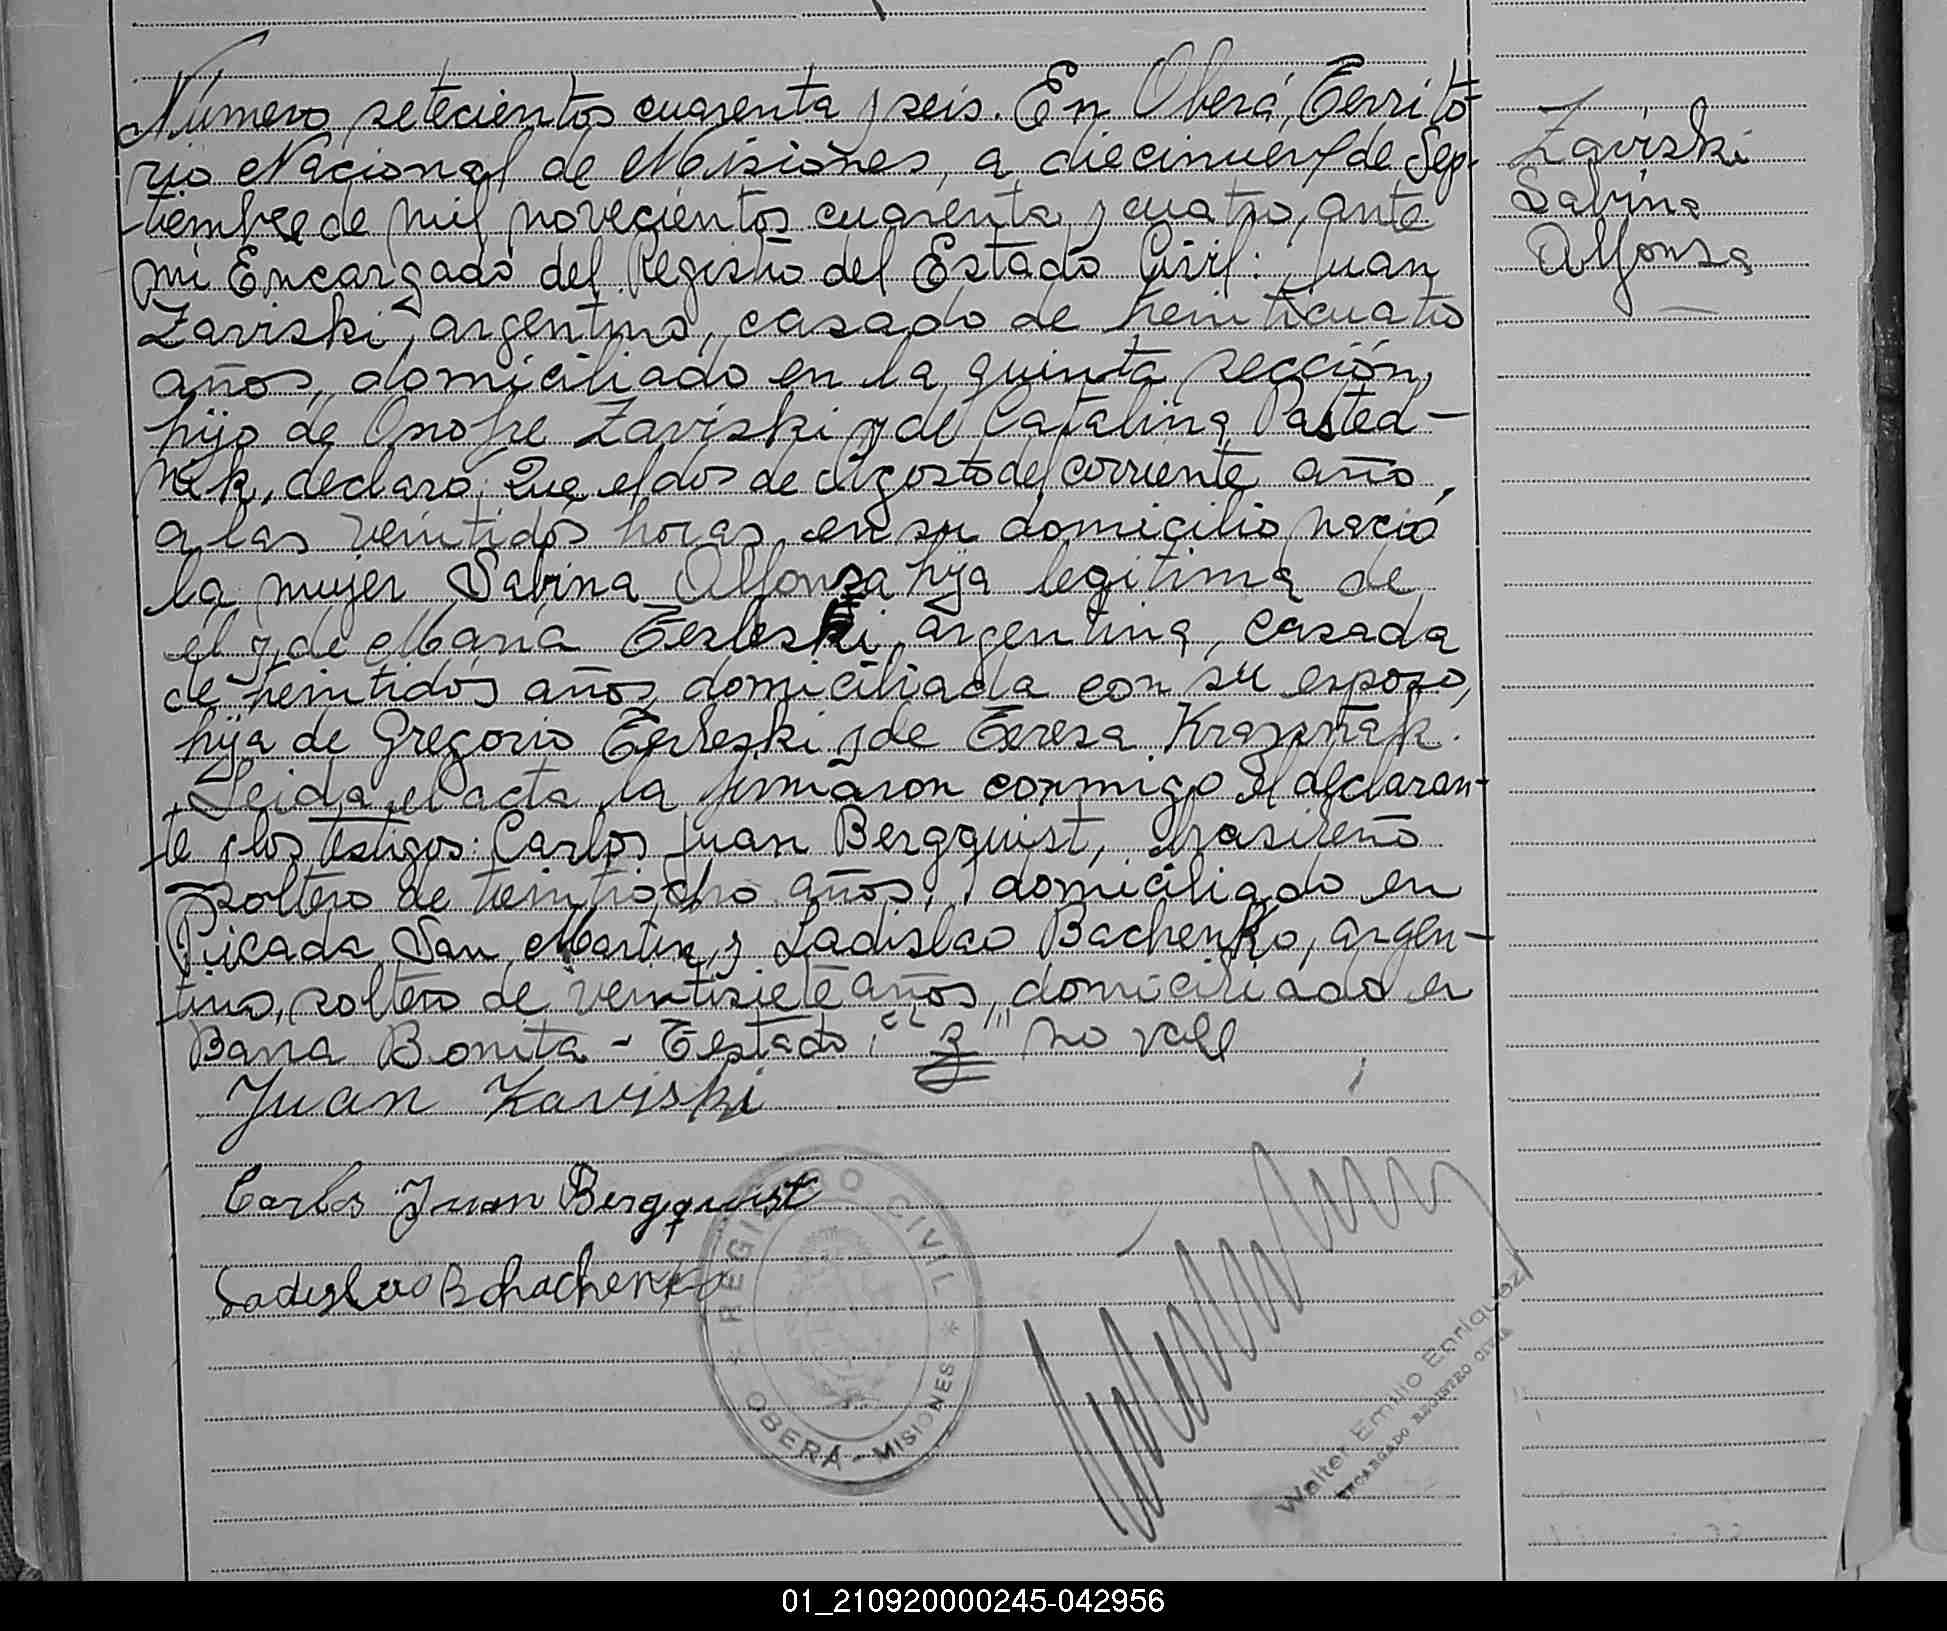 Número setecientos cuarenta y seis. En Oberá, Territo-
rio Nacional de Misiones, a diecinueve de Sep-
tiembre de mil novecientos cuarenta y cuatro, ante
mi Encargado del Registro del Estado Civil: Juan
Zaviski, argentino, casado de veinticuatro
años, domiciliado en la quinta sección,
hijo de Onofre Zaviski y de Catalina Pasted-
nek, declaró: Que el dos de Agosto del corriente año,
a las veintidós horas, en su domicilio nació
la mujer Sabina Alfonsa hija legítima de
él y de María Terleski, argentina, casada
de veintidós años, domiciliada con su esposo,
hija de Gregorio Terleski y de Teresa Krasnak.
Leida el acta la firmaron conmigo el declaran-
te y los testigos: Carlos Juan Bergquist, brasileño
soltero de veintiocho años, domiciliado en
Picada San Martín, y Ladislao Bachenko, argen-
tino, soltero de veintisiete años, domiciliado en
Barra Bonita - Testado: "z" no vale
Juan Zaviski
Carlos Juan Bergquist
Ladislao Bohachenko
REGISTRO CIVIL
* OBERÁ - MISIONES *
Walter Emilio Enriquez
ENCARGADO REGISTRO CIVIL
Zaviski
Sabina
Alfonsa
01_210920000245-042956